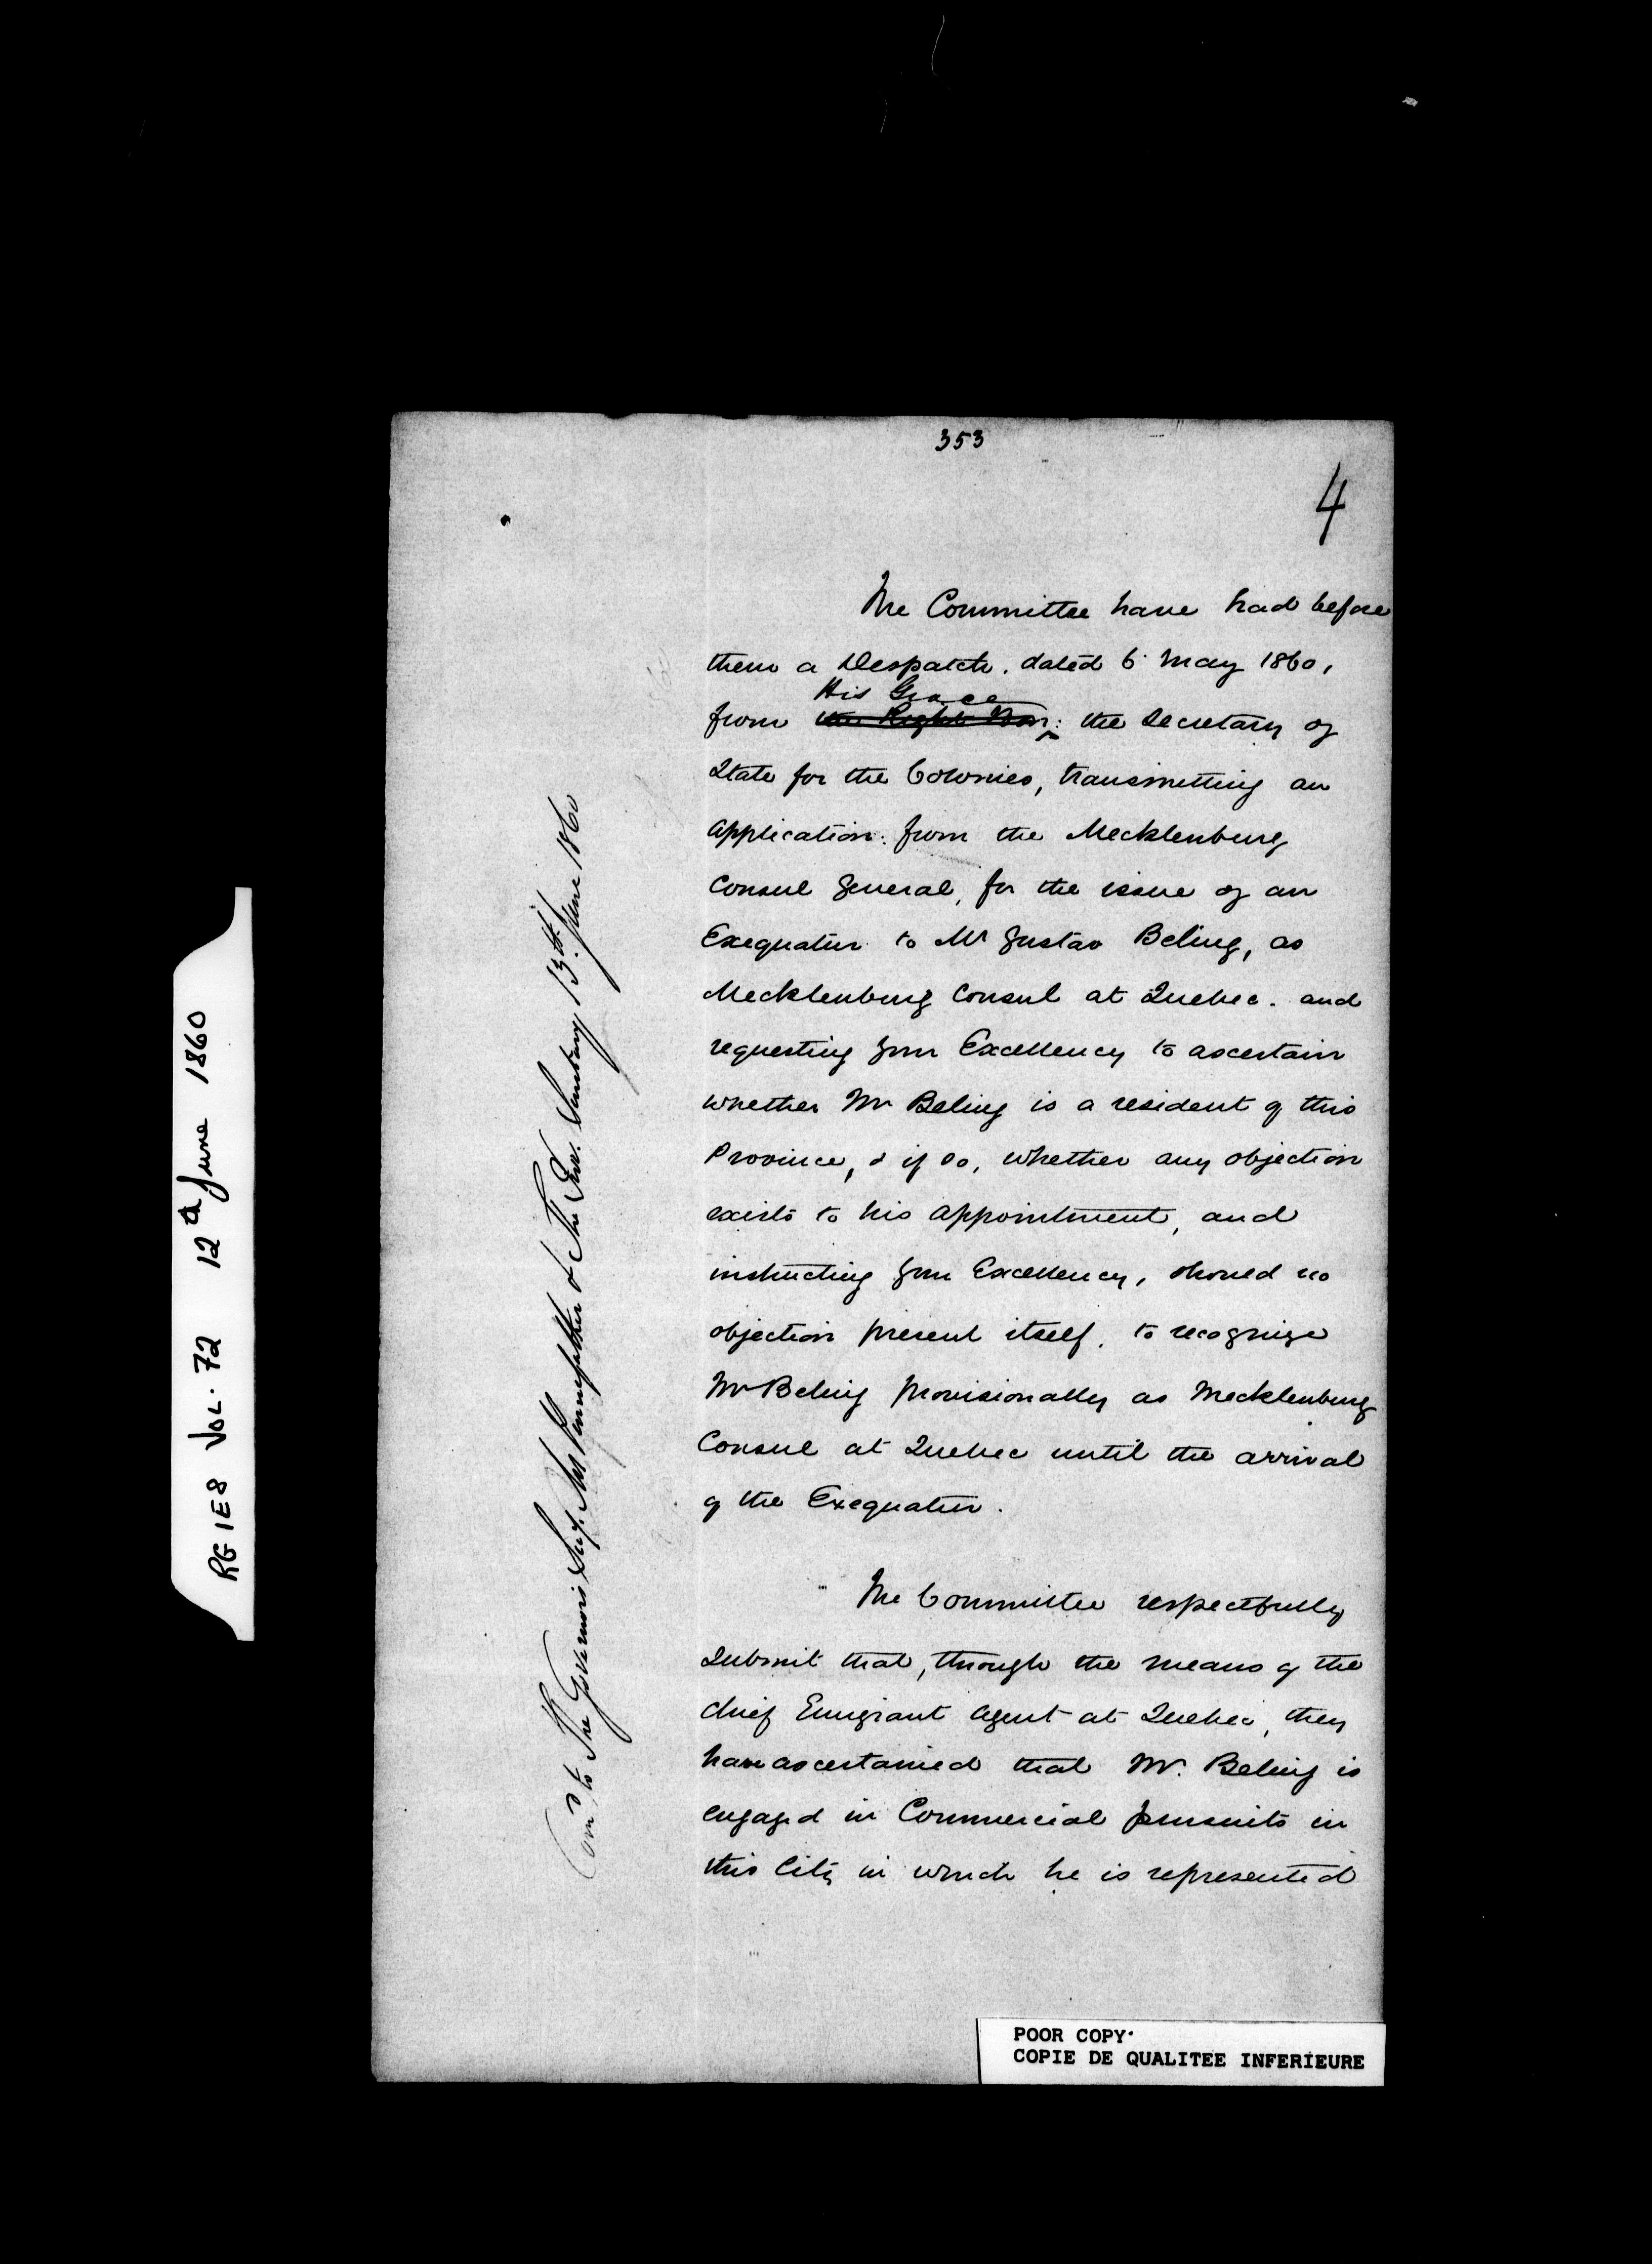 353
4
The Committee have had before
them a Despatch. dated 6 May 1860,
His Grace
from the Right Hon: the Secretary of
State for the Colonies, transmitting an
application from the Mecklenburg
Consul General, for the issue of an
Exequatur to Mr Gustav Beling, as
Mecklenburg Consul at Quebec. and
requesting Your Excellency to ascertain
whether Mr Beling is a resident of this
Province, & if so, whether any objection
exists to his appointment, and
instructing Your Excellency, should no
objection present itself, to recognize
Mr Beling provisionally as Mecklenburg
Consul at Quebec until the arrival
of the Exequatur.
The Committee respectfully
submit that, through the means of the
Chief Emigrant Agent at Quebec, they
have ascertained that Mr. Beling is
engaged in Commercial pursuits in
this City in which he is represented
Com'd to The Governor's Secy. Mr Pennefather & The Prov. Secretary 13th June 1860
RG 1 E8 VOL. 72 12th June 1860
POOR COPY
COPIE DE QUALITEE INFERIEURE